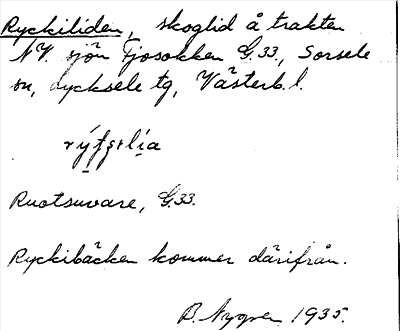 Ryckiliden, skoglid å trakten
NV. sjön Fjosokken G.33., Sorsele
sn, Lycksele tg, Västerb. l.
Ruotsuvare, G.33.
Ryckibäcken kommer därifrån.
B. Nygren 1935.